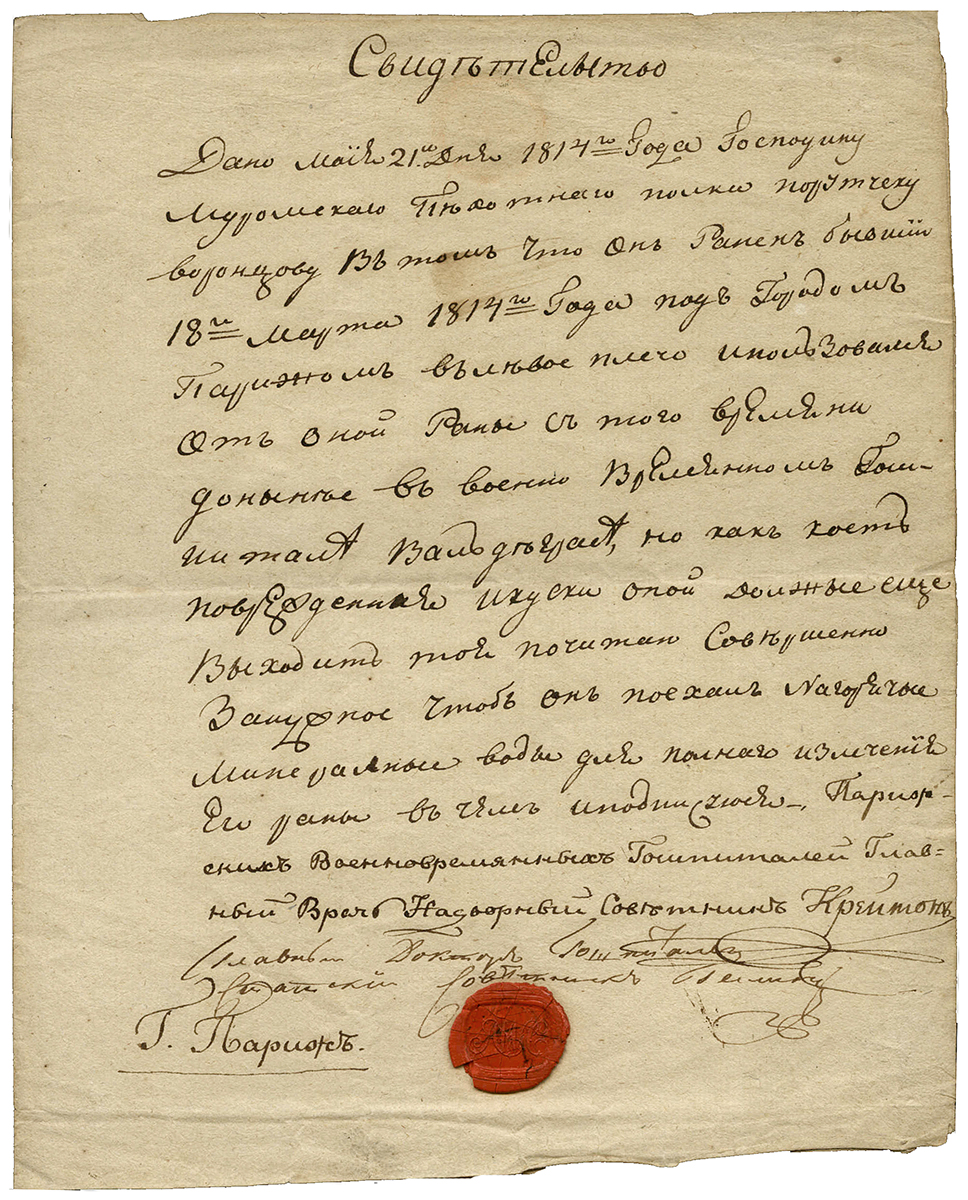 Свидѣтельство
Дано маїя 21го Дня 1814го Года Господину
Муромскаго Пѣхотнаго полка порутчеку
воронцову Въ томъ что Онъ Раненъ бывшїй
18го марта 1814го Года подъ Городомъ
Парижомъ въ лѣвое плечо и пользовался
Отъ оной Раны съ того врѣмѣни
донынѣе въ военно Времянномъ Гош-
питалѣ Вальдѣграсѣ, но какъ кость
поврежденная и куски оной должные еще
Выходить то я почитаю Совѣршенно
За нужное чтобъ онъ поехалъ На горячые
Минеральные воды для полнаго излеченїя
Его раны въ чемъ и подписуюся, Париж-
скихъ Военновремянныхъ Гошпиталей Глав-
ный Врачь Надворный Совѣтникъ Крейтонъ
Главный Докторъ Гошпиталя
Статский Совѣтникъ
Г. Парижъ.